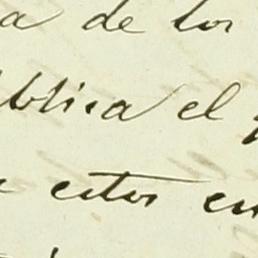 a de los
blica el
estos en